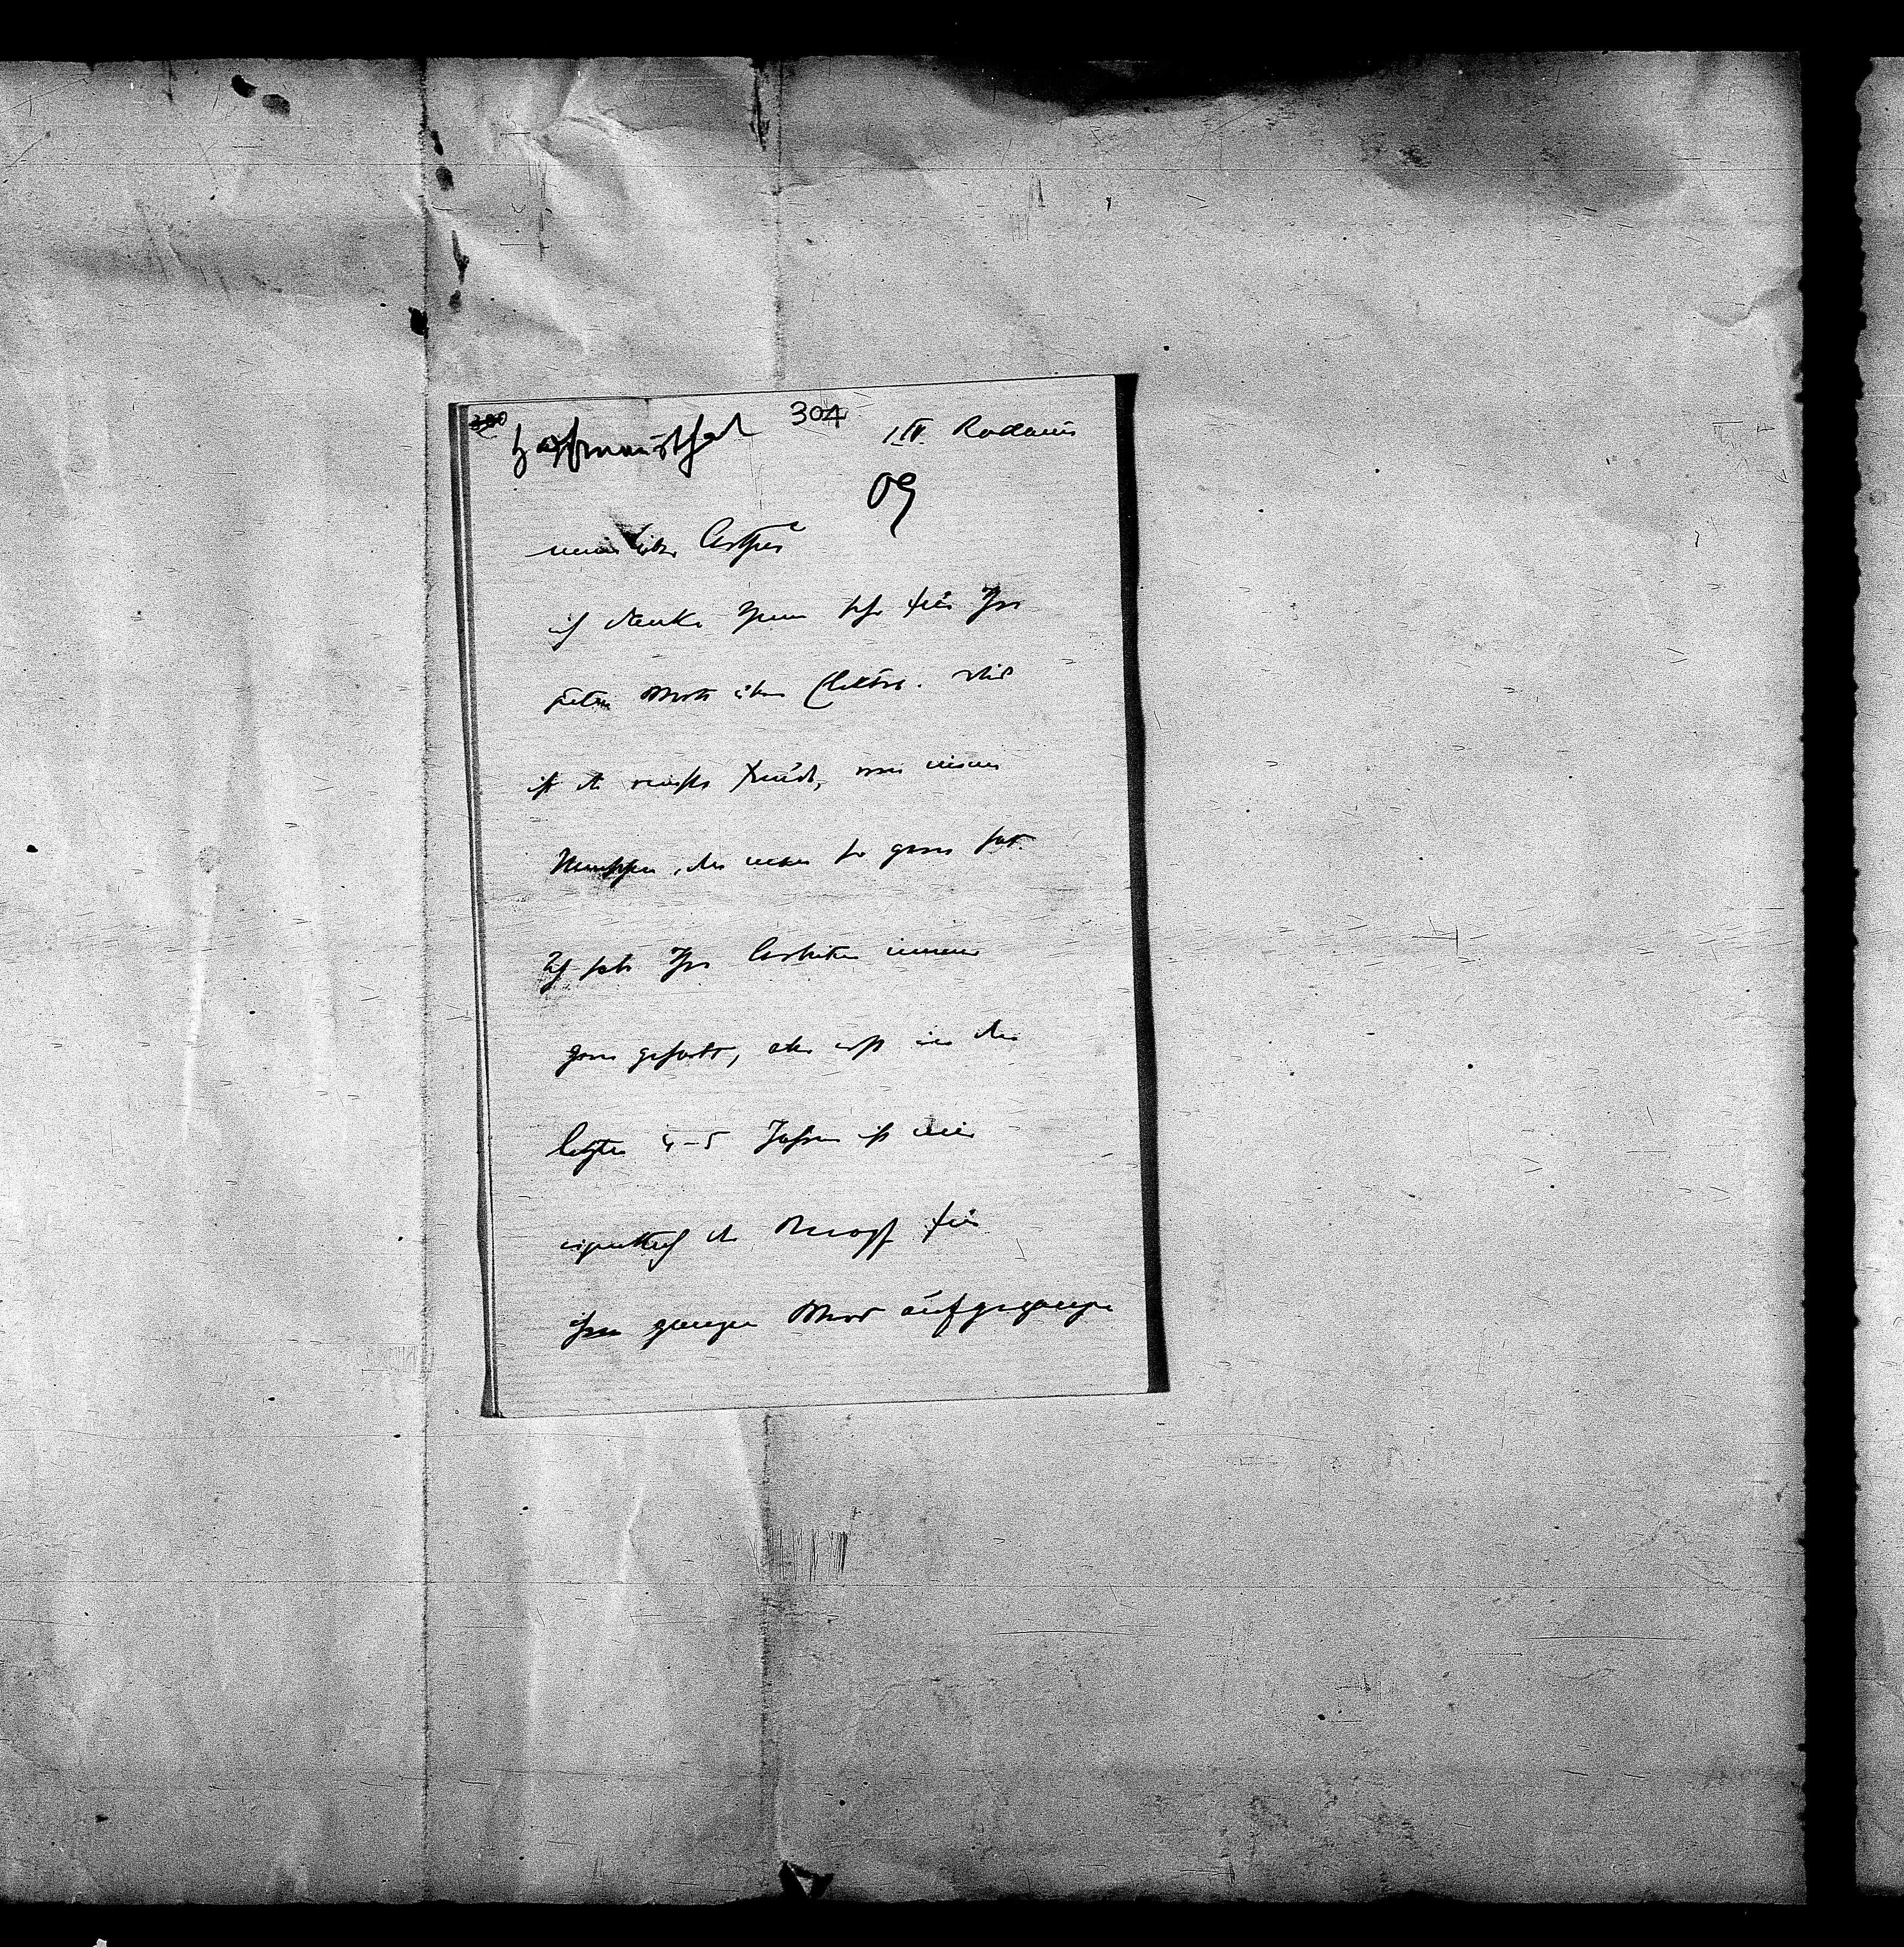 300
Hofmannsthal 304 1 IV. Rodaun
09
mein lieber Arthur
ich danke Ihnen sehr für Ihre
guten Worte über Elektra. Das
ist die reinste Freude, von einem
Menschen, den man so gern hat.
Ich habe Ihre Arbeiten immer
gern gehabt, aber erst in den
letzten 4–5 Jahren ist mir
eigentlich der Knopf für
ihren ganzen Wert aufgegangen